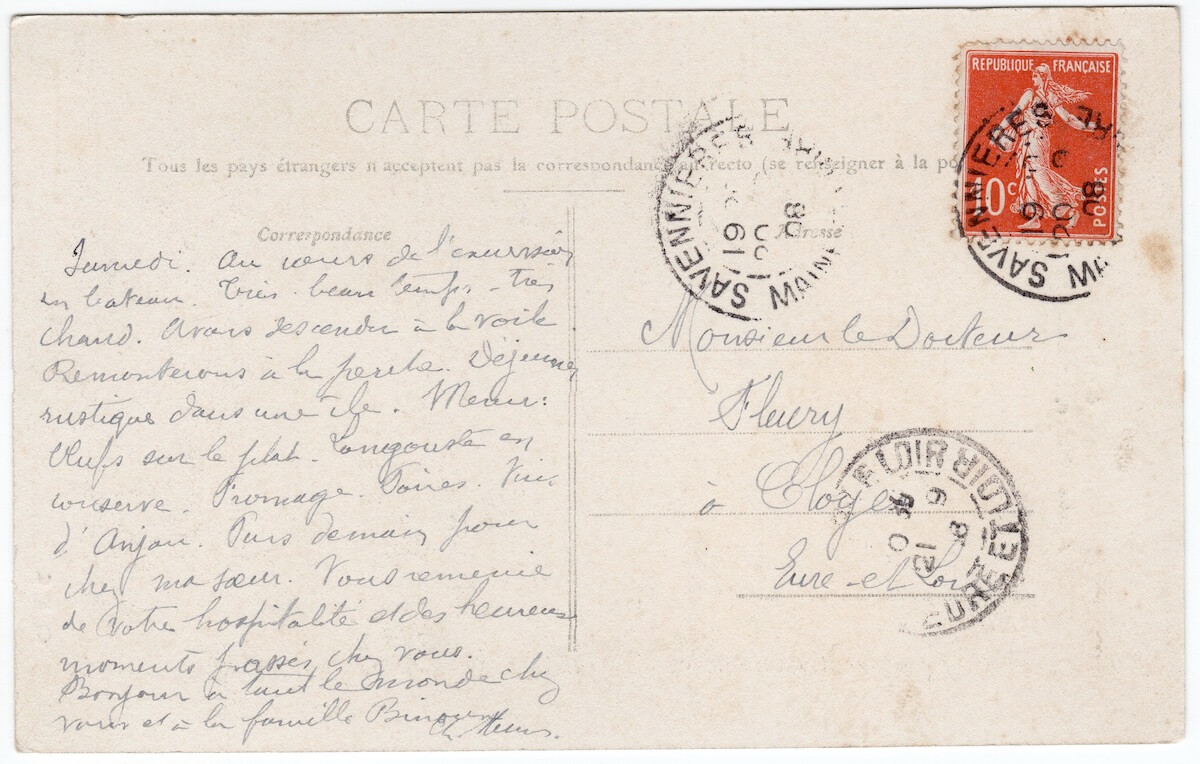 CARTE POSTALE
Tous les pays étrangers n'acceptent pas la correspondance au recto (se renseigner à la po
Correspondance
Adresse
REPUBLIQUE FRANÇAISE
10c
POSTES
SAVENNIERES
MAINE
19
08
SAVENNIERES
MA
19
08
Samedi. Au cours de l'excursion
en bateau. Très beau temps - très
chaud. Avons descendu à la voile
Remonterons à la perche. Déjeuner
rustique dans une île. Menu:
Œufs sur le plat. Langouste en
conserve. Fromage. Poires. Vin
d'Anjou. Pars demain pour
chez ma sœur. Vous remercie
de votre hospitalité et des heureux
moments passés chez vous.
Bonjour à tout le monde chez
vous et à la famille
Monsieur le Docteur
Fleury
à Cloyes
Eure-et-Loir
LOIR
EURE ET LOIR
21
9
8